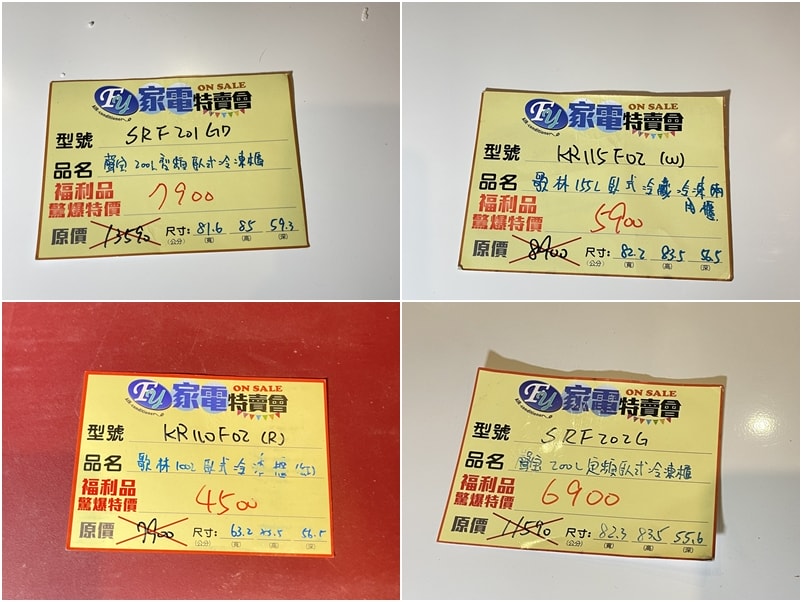 FU 家電特賣會 ON SALE
air conditioner
型號 SRF201GD
品名 聲寶 200L 變頻臥式冷凍櫃
福利品
驚爆特價 7900
原價 13590 尺寸: 81.6 85 59.3
(公分) (寬) (高) (深)
FU 家電特賣會 ON SALE
air conditioner
型號 KR115F02 (W)
品名 歌林 155L 臥式冷藏冷凍兩用櫃
福利品
驚爆特價 5900
原價 8900 尺寸: 82.2 83.5 56.5
(公分) (寬) (高) (深)
FU 家電特賣會 ON SALE
air conditioner
型號 KR110F02 (R)
品名 歌林 100L 臥式冷凍櫃
福利品
驚爆特價 4500
原價 7900 尺寸: 63.2
(公分) (寬) (高) (深)
FU 家電特賣會 ON SALE
air conditioner
型號 SRF202G
品名 聲寶 200L 定頻臥式冷凍櫃
福利品
驚爆特價 6900
原價 11590 尺寸: 82.3 83.5 55.6
(公分) (寬) (高) (深)